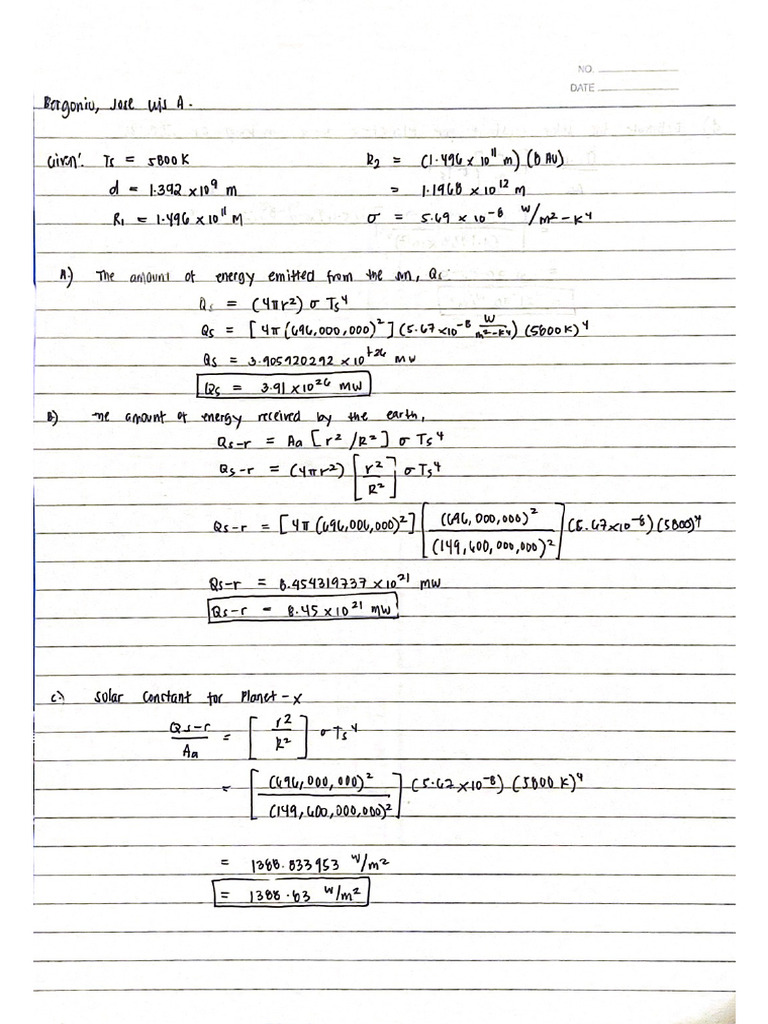 NO.
DATE
Bergoniu, Jose Luis A.
Given: Ts = 5800 K
R2 = (1.496 x 10^11 m) (8 AU)
d = 1.392 x 10^9 m
= 1.1968 x 10^12 m
R1 = 1.496 x 10^11 M
σ = 5.69 x 10^-8 W/m2-K4
A.) The amount of energy emitted from the sun, Qs:
Qs = (4πr2) σ Ts^4
Qs = [4π(696,000,000)^2] (5.67x10^-8 W/m2-K4) (5800K)^4
Qs = 3.905720292 x 10^+26 MW
Qs = 3.91 x10^26 MW
B.) The amount of energy received by the earth,
Qs-r = Aa [r2/R2] σ Ts^4
Qs-r = (4πr2) [r2/R2] σ Ts^4
Qs-r = [4π(696,000,000)^2] [(696,000,000)^2/(149,600,000,000)^2] (5.67x10^-8) (5800)^4
Qs-r = 8.454319737 x 10^21 MW
Qs-r = 8.45 x 10^21 MW
C.) Solar Constant for Planet-X
Qs-r/Aa = [r2/R2] σ Ts^4
= [(696,000,000)^2/(149,600,000,000)^2] (5.67 x10^-8) (5800 K)^4
= 1388.833953 W/m2
= 1388.83 W/m2